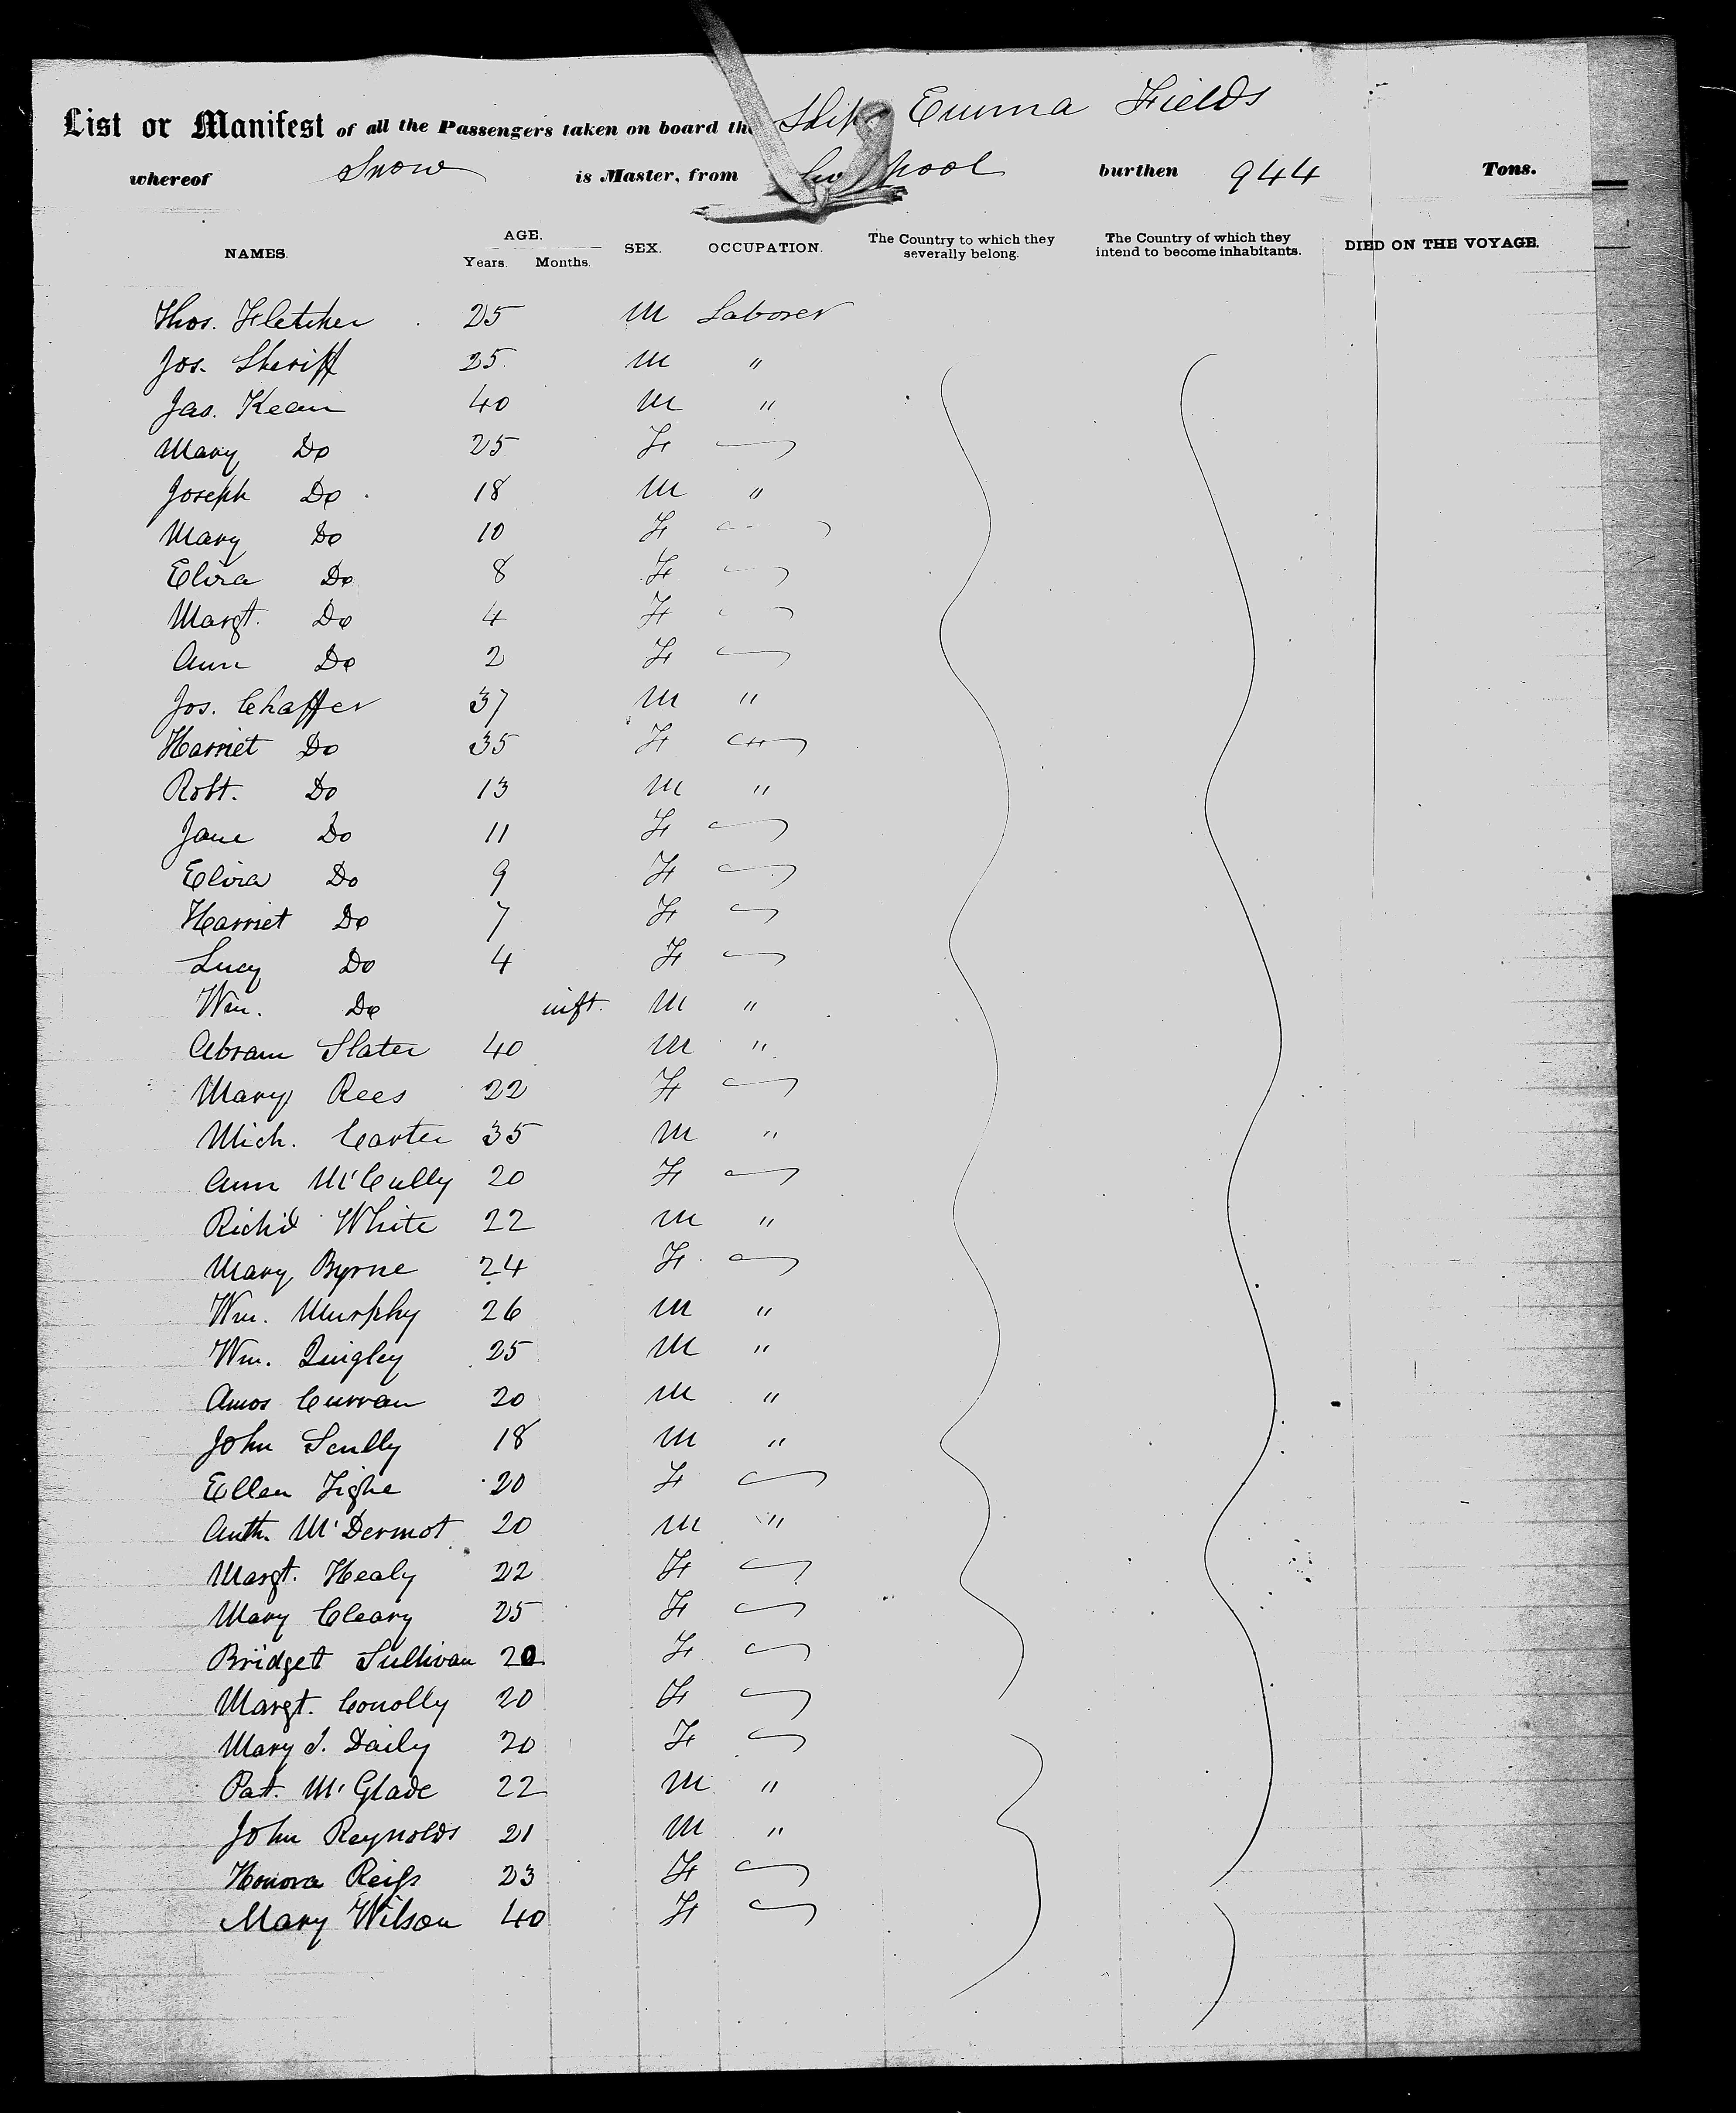 List or Manifest of all the Passengers taken on board the Ship Emma Fields
whereof Snow is Master, from pool burthen 944 Tons.
NAMES. AGE. Years. Months. SEX. OCCUPATION. The Country to which they severally belong. The Country of which they intend to become inhabitants. DIED ON THE VOYAGE.
Thos. Fletcher 25 M Laborer
Jos. Sheriff 25 M "
Jas. Kean 40 M "
Mary Do 25 F
Joseph Do 18 M "
Mary Do 10 F
Eliza Do 8 F
Margt. Do 4 F
Ann Do 2 F
Jos. Chaffer 37 M "
Harriet Do 35 F
Robt. Do 13 M "
Jane Do 11 F
Eliza Do 9 F
Harriet Do 7 F
Lucy Do 4 F
Wm. Do inft. M "
Abram Slater 40 M "
Mary Rees 22 F
Mich. Carter 35 M "
Ann McCully 20 F
Rich'd White 22 M "
Mary Byrne 24 F
Wm. Murphy 26 M "
Wm. Quigley 25 M "
Amos Curran 20 M "
John Scully 18 M "
Ellen Tighe 20 F
Anth. McDermot 20 M "
Margt. Healy 22 F
Mary Cleary 25 F
Bridget Sullivan 20 F
Margt. Conolly 20 F
Mary J. Daily 20 F
Pat. McGlade 22 M "
John Reynolds 21 M "
Honora Reiss 23 F
Mary Wilson 40 F